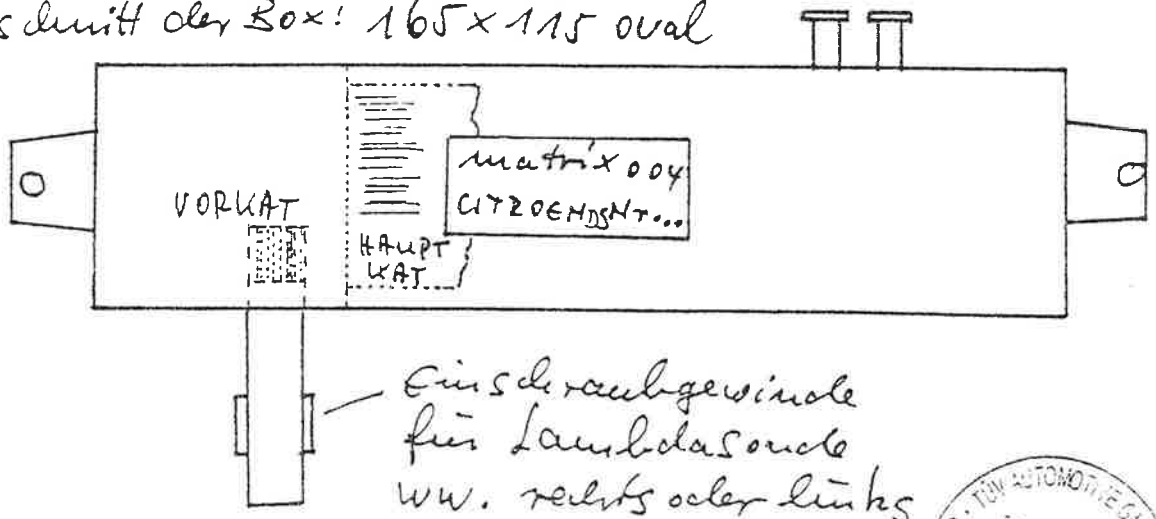 schnitt der Box: 165 x 115 oval
VORKAT
HAUPT
KAT
matrix 004
CITROEN DS Nr...
Einschraubgewinde
für Lambdasonde
ww. rechts oder links
TÜV AUTOMOTIVE G